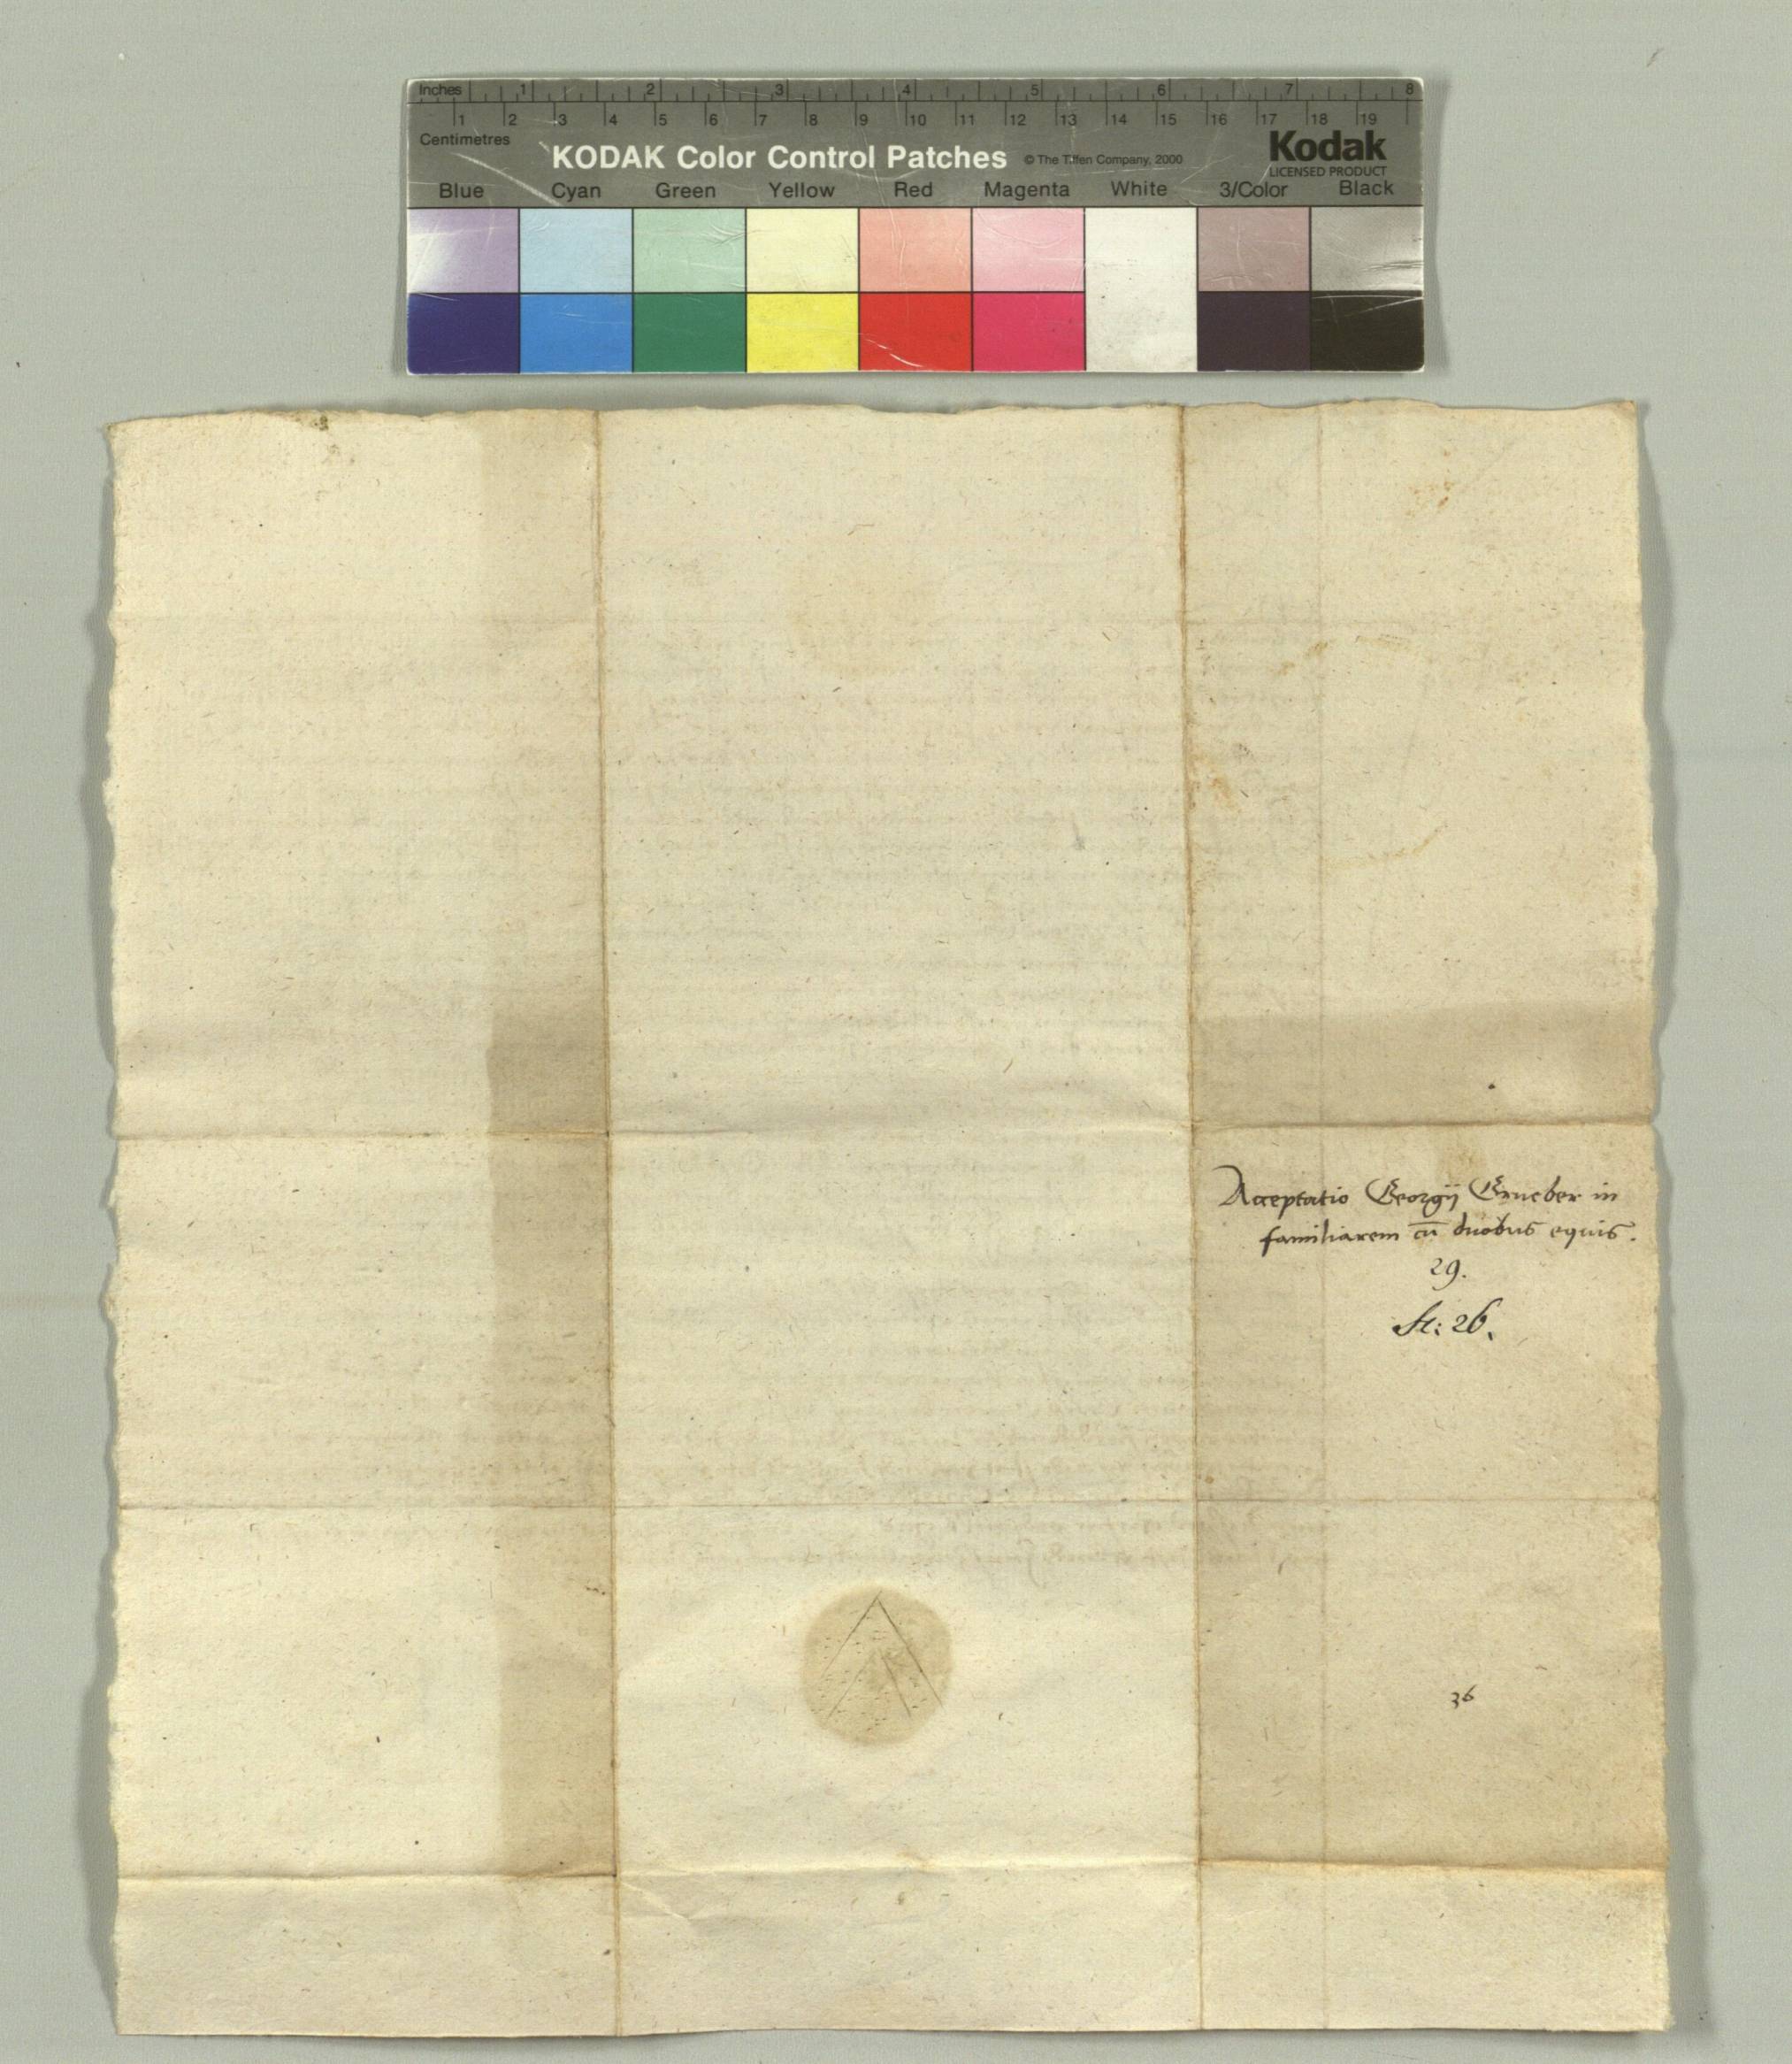 Inches 1 2 3 4 5 6 7 8
1 2 3 4 5 6 7 8 9 10 11 12 13 14 15 16 17 18 19
Centimetres
KODAK Color Control Patches © The Tiffen Company, 2000 Kodak
LICENSED PRODUCT
Blue Cyan Green Yellow Red Magenta White 3/Color Black
Acceptatio Georgij Grueber in
familiarem cū duobus equis.
29.
St: 26.
36